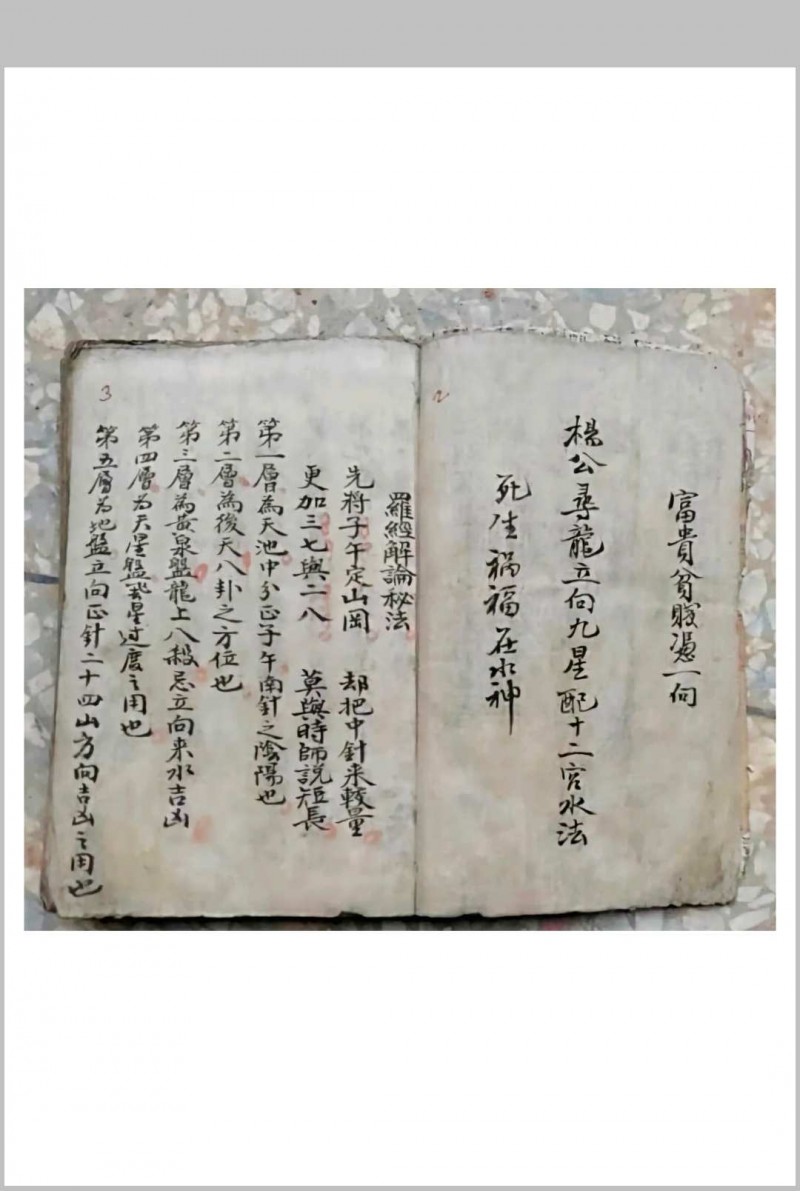 2
富貴貧賤憑一向
楊公尋龍立向九星配十二宮水法
死生禍福在水神
3
羅經解論秘法
先將子午定山岡 却把中針来較量
更加三七與二八 莫與時師說短長
第一層為天池中分正子午南針之陰陽也
第二層為後天八卦之方位也
第三層為黄泉盤龍上八殺忌立向来水吉凶
第四層為天星盤 星过度之用也
第五層為地盤立向正針二十四山方向吉凶之用也